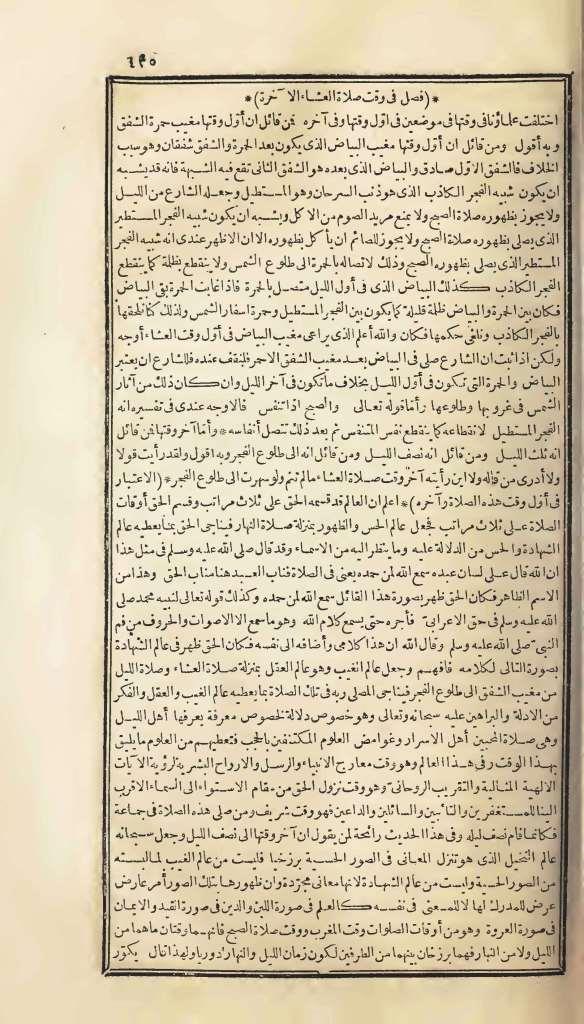 ٤٣٥
*(فصل فى وقت صلاة العشاء الآخرة)*
اختلفت علماؤنا فى وقتها فى موضعين فى أوّل وقتها وفى آخره فمن قائل ان أوّل وقتها مغيب حمرة الشفق
وبه أقول ومن قائل ان أوّل وقتها مغيب البياض الذى يكون بعد الحمرة والشفق شفقان وهو سبب
الخلاف فالشفق الاوّل صادق والبياض الذى بعده هو الشفق الثانى تقع فيه الشبهة فانه قد يشبه
ان يكون شبيه الفجر الكاذب الذى هو ذنب السرحان وهو المستطيل وجعله الشارع من الليل
ولا يجوز بظهوره صلاة الصبح ولا يمنع مريد الصوم من الاكل ويشبه ان يكون شبيه الفجر المستطير
الذى يصلى بظهوره صلاة الصبح ولا يجوز للصائم ان يأكل بظهوره الا ان الاظهر عندى انه شبيه الفجر
المستطير الذى يصلى بظهوره الصبح وذلك لاتصاله بالحمرة الى طلوع الشمس ولا ينقطع بظلمة كما ينقطع
الفجر الكاذب كذلك البياض الذى فى أول الليل متصل بالحمرة فاذا غابت الحمرة بقى البياض
فلو كان بين الحمرة والبياض ظلمة قليلة كما يكون بين الفجر المستطيل وحمرة اسفار الشمس ولذلك كنا نلحقها
بالفجر الكاذب ونلغى حكمها فكان والله أعلم الذى يراعى مغيب البياض فى أوّل وقت العشاء أوجه
ولكن اذا ثبت ان الشارع صلى فى البياض بعد مغيب الشفق الاحمر فلنقف عنده فللشارع ان يعتبر
البياض والحمرة التى تكون فى أوّل الليل بخلاف ما تكون فى آخر الليل وان كان ذلك من آثار
الشمس فى غروبها وطلوعها وأما قوله تعالى والصبح اذا تنفس فالاوجه عندى فى تفسيره انه
الفجر المستطيل لانقطاعه كما ينقطع نفس المتنفس ثم بعد ذلك تتصل أنفاسه * وأمّا آخر وقتها فمن قائل
انه ثلث الليل ومن قائل انه نصف الليل ومن قائل انه الى طلوع الفجر وبه اقول ولقد رأيت قولا
ولا أدرى من قاله ولا اين رأيته آخر وقت صلاة العشاء ما لم تنم ولو سهرت الى طلوع الفجر * (الاعتبار
فى أوّل وقت هذه الصلاة وآخره) * اعلم ان العالم قد قسمه الحق على ثلاث مراتب وقسم الحق أوقات
الصلاة على ثلاث مراتب فجعل عالم الحس والظهور بمنزلة صلاة النهار فيناجى الحق بما يعطيه عالم
الشهادة والحس من الدلالة عليه وما ينظر اليه من الاسماء وقد قال صلى الله عليه وسلم فى مثل هذا
ان الله قال على لسان عبده سمع الله لمن حمده يعنى فى الصلاة فناب العبد هنا مناب الحق وهذا من
الاسم الظاهر فكان الحق ظهر بصورة هذا القائل سمع الله لمن حمده وكذلك قوله تعالى لنبيه محمد صلى
الله عليه وسلم فى حق الاعرابى فأجره حتى يسمع كلام الله وهو ما سمع الا الاصوات والحروف من فم
النبىّ صلى الله عليه وسلم وقال الله ان هذا كلامى وأضافه الى نفسه فكان الحق ظهر فى عالم الشهادة
بصورة التالى لكلامه فافهم وجعل عالم الغيب وهو عالم العقل بمنزلة صلاة العشاء وصلاة الليل
من مغيب الشفق الى طلوع الفجر فيناجى المصلى ربه فى تلك الصلاة بما يعطيه عالم الغيب والعقل والفكر
من الادلة والبراهين عليه سبحانه وتعالى وهو خصوص دلالة لخصوص معرفة يعرفها أهل الليل
وهى صلاة المحبين أهل الاسرار وغوامض العلوم المكتنفين بالحجب فتعطيهم من العلوم ما يليق
بهذا الوقت وفى هذا العالم وهو وقت معارج الانبياء والرسل والارواح البشرية لرؤية الآيات
الالهية المثالية والتقريب الروحانى وهو وقت نزول الحق من مقام الاستواء الى السماء الاقرب
الينا للمستغفرين والتائبين والسائلين والداعين فهو وقت شريف ومن صلى هذه الصلاة فى جماعة
فكأنما قام نصف ليله وفى هذا الحديث رائحة لمن يقول ان آخر وقتها الى نصف الليل وجعل سبحانه
عالم التخيل الذى هو تنزل المعانى فى الصور الحسية برزخيا فليست من عالم الغيب لما لبسته
من الصور الحسية وليست من عالم الشهادة لانها معانى مجرّدة وان ظهورها بتلك الصور أمر عارض
عرض للمدرك لها لا للمعنى فى نفسه كالعلم فى صورة اللبن والدين فى صورة القيد والايمان
فى صورة العروة وهو من أوقات الصلوات وقت المغرب ووقت صلاة الصبح فانهما وقتان ما هما من
الليل ولا من النهار فهما برزخان بينهما من الطرفين لكون زمان الليل والنهار دوريا ولهذا قال يكوّر